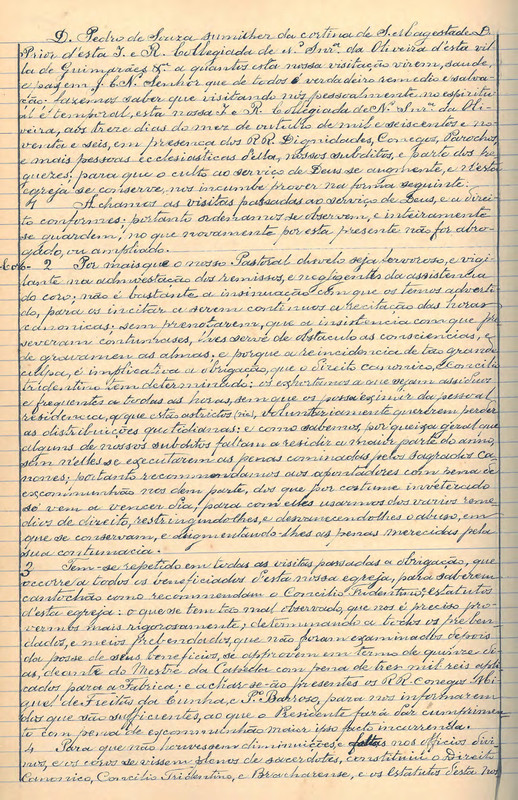 D. Pedro de Souza sumilher da cortina de S. Magestade D.
Prior d'esta I. e R. Collegiada de N.ª Snr.ª da Oliveira d'esta vil
la de Guimarães &.ª a quantos esta nossa visitação virem, saude,
e paz em J. C. N. Senhor que de todos é verdadeiro remedio e salva
ção. Fazemos saber que visitando nós pessoalmente no espiritu
al e temporal, esta nossa I. e R. Collegiada de N.ª Snr.ª da Oli
veira, aos treze dias do mez de outubro de mil e seiscentos e no
venta e seis, em presença dos R.R. Dignidades, Conegos, Parochos,
e mais pessoas ecclesiasticas d'ella, nossos subditos, e parte dos fre
guezes; para que o culto ao serviço de Deus se augmente, e n'esta
egreja se conserve, nos incumbe prover na forma seguinte.
1 Achamos as visitas passadas ao serviço de Deus, e a direi
to conformes: portanto ordenamos se observem, e inteiramente
se guardem, no que novamente por esta presente não fôr abro
gado, ou ampliado.
Côro- 2 Por mais que o nosso Pastoral disvelo seja fervoroso, e vigi
lante na admoestação dos remissos, e negligentes da assistencia
do coro; não é bastante a insinuação com que os temos adverti
do, para os incitar a serem continuos a recitação das horas
canonicas; sem prenotarem, que a insistencia com que per
severam contumases, lhes serve de obstaculo as consciencias, e
de gravamen as almas, e porque a reincidencia de tão grande
culpa, é implicativa a obrigação, que o direito canonico, e Concilio
tridentino tem determinado; os exhortamos a que sejam assiduos
e frequentes a todas as horas, sem que os possa eximir da pessoal
residencia, a que estão astrictos (sic), voluntariamente quererem perder
as distribuições quotidianas; e como sabemos, por queixa geral que
alguns de nossos subditos faltam a residir a maior parte do anno,
sem n'elles se executarem as penas cominadas pelos sagrados Ca
nones; portanto recommendamos aos apontadores com pena de
excommunhão nos dêm parte, dos que por costume inveterado
só vem a vencer dia, para com elles usarmos dos varios reme
dios de direito, restringindo-lhes, e desvanecendo-lhes o abuso, em
que se conservam, e augmentando-lhes as penas merecidas pela
sua contumacia.
3 Tem-se repetido em todas as visitas passadas a obrigação, que
occorre a todos os beneficiados d'esta nossa egreja, para saberem
cantochão como recommendam o Concilio Tridentino, e statutos
d'esta egreja: o que se tem tão mal observado, que nos é preciso pro
vermos mais rigorosamente; determinando a todos os preben
dados, e meios prebendados, que não foram examinados depois
da posse de seus beneficios, se approvem em termo de quinze di
as, deante do Mestre da Capella com pena de tres mil reis apli
cados para a Fabrica; e achar-se-ão presentes os R.R. Conegos Mi
guel de Freitas da Cunha, e P.º Barroso, para nos informarem
dos que são sufficientes, ao que o Presidente fará dar cumprimen
to com pena de excommunhão maior ipso facto incurrenda.
4 Para que não houvessem diminuições, e faltas nos Officios divi
nos, e os coros se vissem plenos de sacerdotes, constituiu o Direito
Canonico, Concilio Tridentino, e Bracharense, e os Estatutos d'esta nos